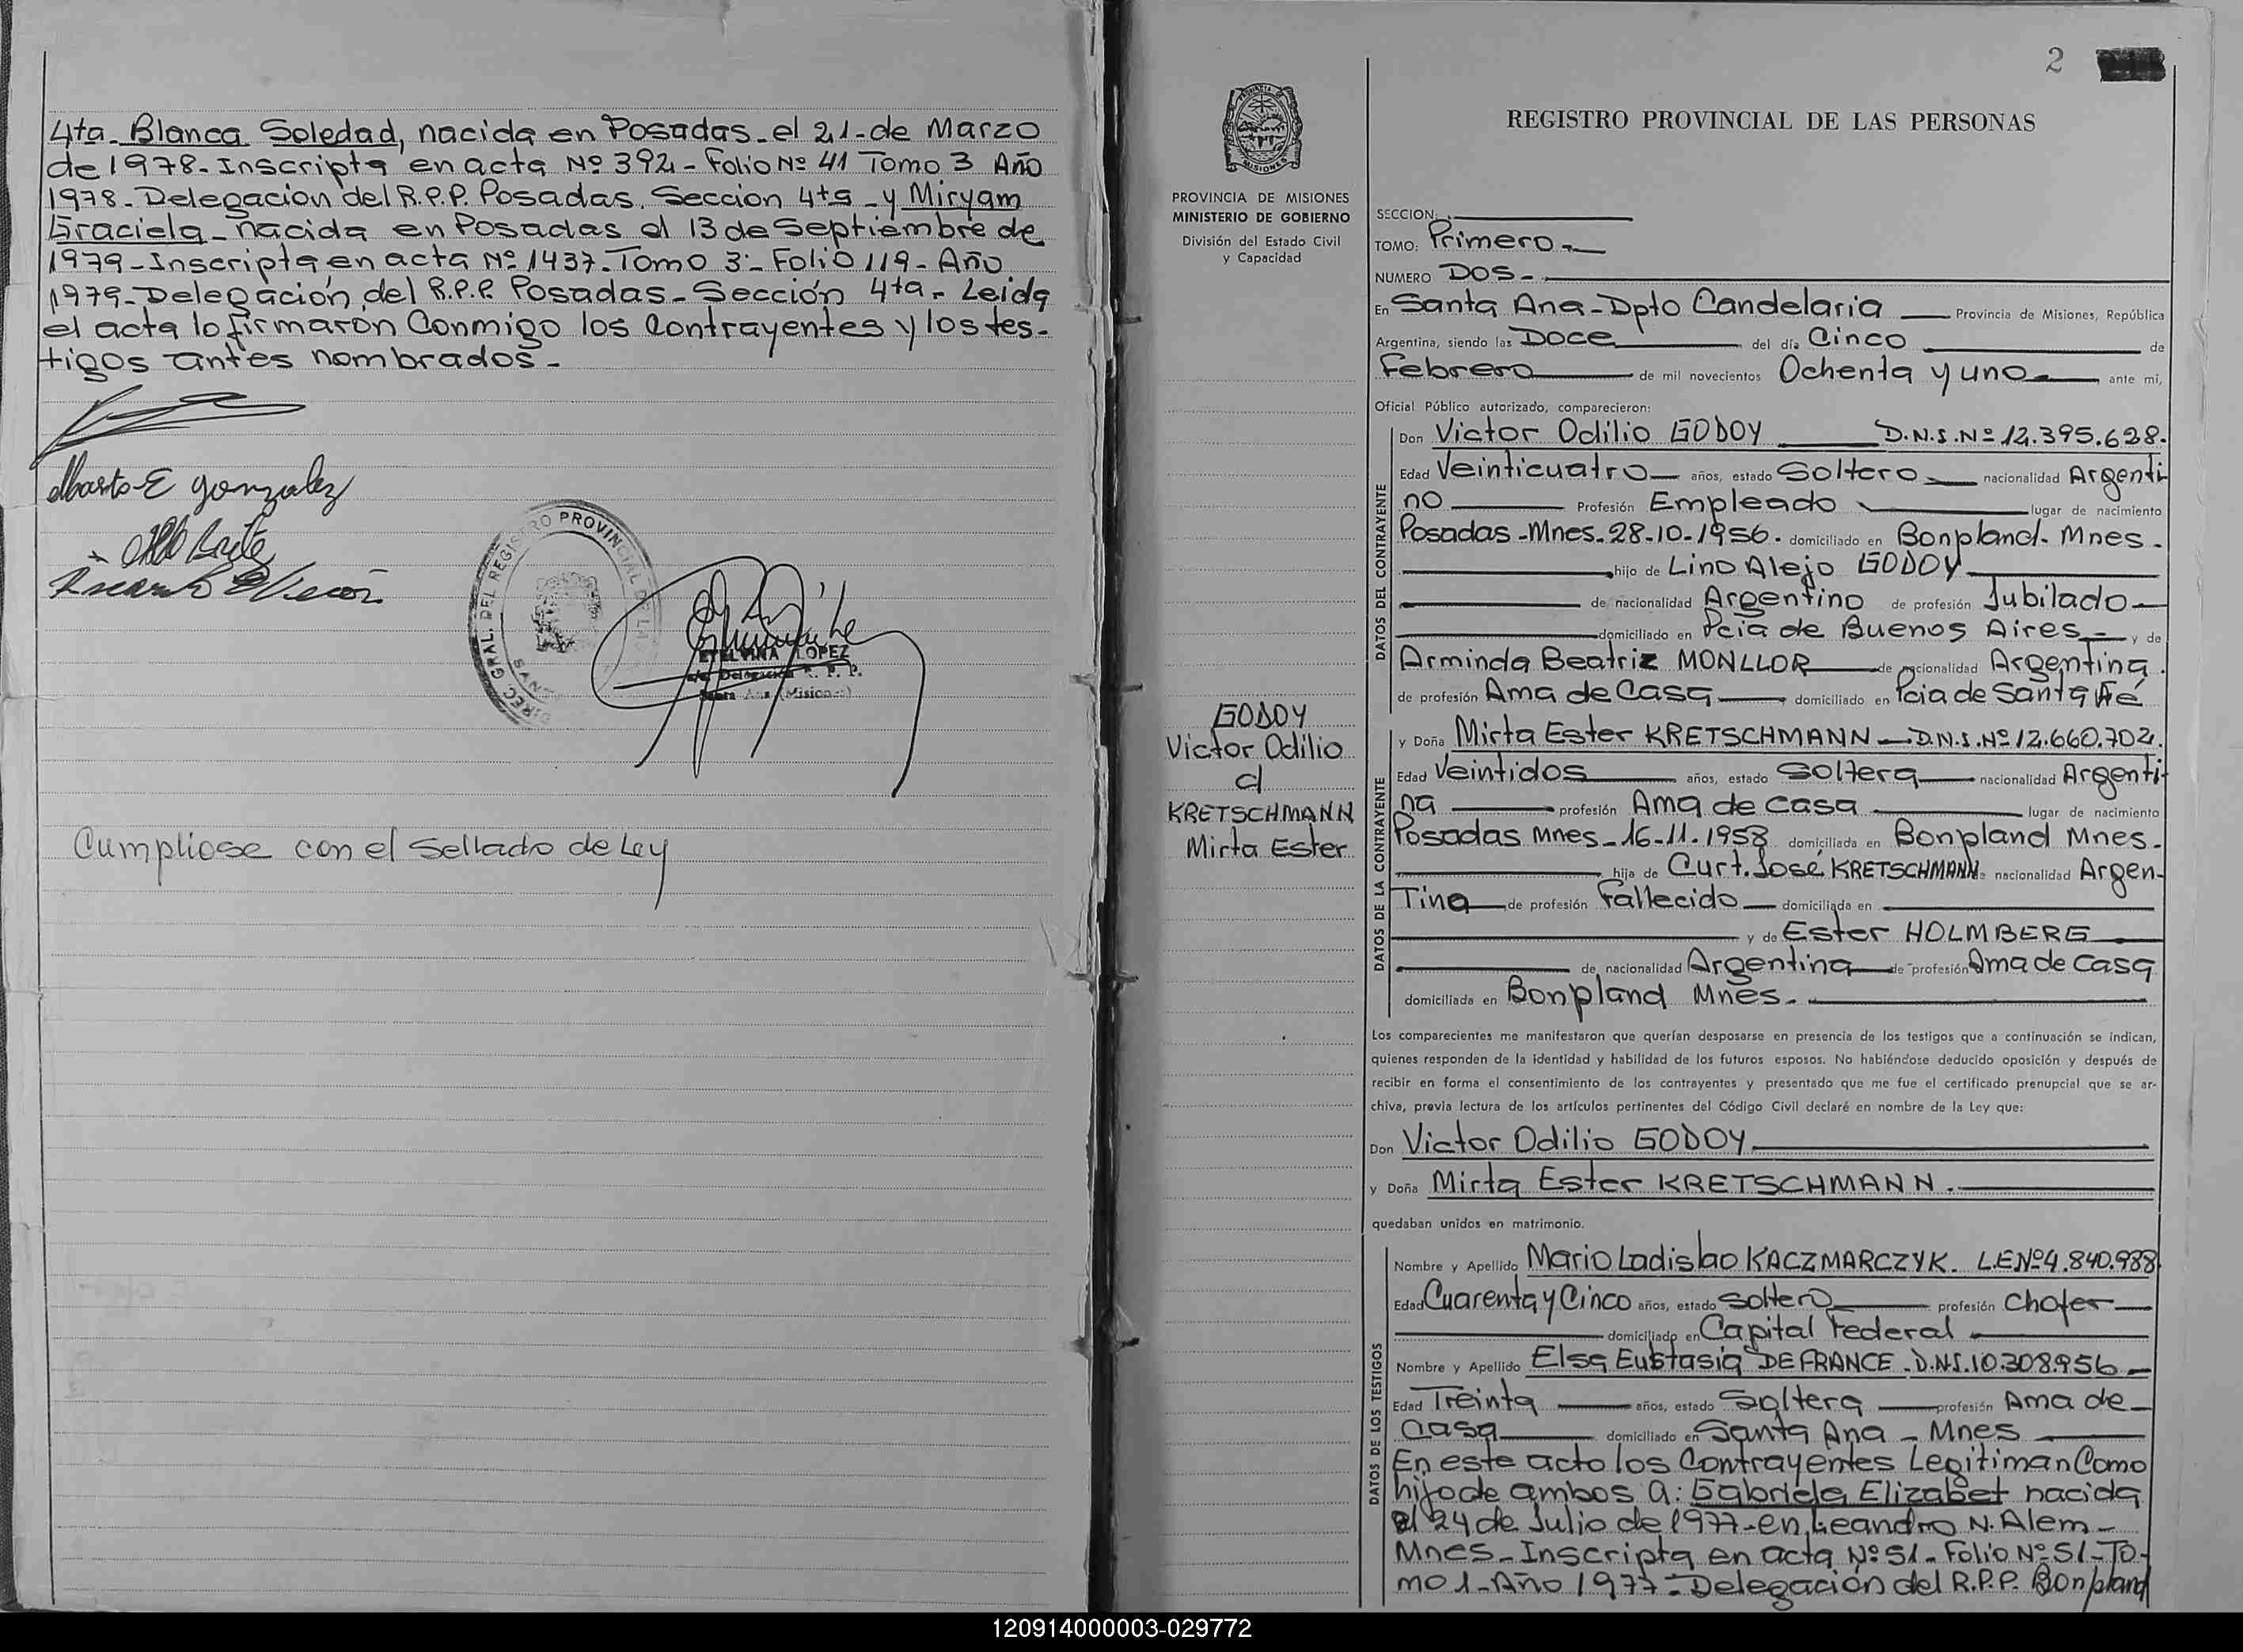 4ta- Blanca Soledad, nacida en Posadas- el 21- de Marzo
de 1978- Inscripta en acta Nº 392- Folio Nº 41 Tomo 3 Año
1978- Delegacion del R.P.P. Posadas. Seccion 4ta - y Miryam
Graciela- nacida en Posadas el 13 de Septiembre de
1979- Inscripta en acta Nº 1437. Tomo 3:- Folio 119- Año
1979- Delegación del R.P.P. Posadas- Sección 4ta- Leida
el acta lo firmaron Conmigo los Contrayentes y los tes-
tigos antes nombrados-
E gonzalez
DIREC. GRAL. DEL REGISTRO PROVINCIAL DE LAS
ETELVINA LOPEZ
Delegación R. P. P.
Santa Ana (Misiones)
Cumpliose con el Sellado de Ley
2
PROVINCIA DE MISIONES
MINISTERIO DE GOBIERNO
División del Estado Civil
y Capacidad
GODOY
Victor Odilio
c/
KRETSCHMANN
Mirta Ester
REGISTRO PROVINCIAL DE LAS PERSONAS
SECCION:
TOMO: Primero.-
NUMERO DOS-
En Santa Ana- Dpto Candelaria Provincia de Misiones, República
Argentina, siendo las Doce del día Cinco de
Febrero de mil novecientos Ochenta y uno ante mi,
Oficial Público autorizado, comparecieron:
DATOS DEL CONTRAYENTE
Don Victor Odilio GODOY D.N.I.Nº 12.395.628.
Edad Veinticuatro años, estado Soltero nacionalidad Argenti
no Profesión Empleado lugar de nacimiento
Posadas-Mnes. 28-10-1956. domiciliado en Bonpland- Mnes.
hijo de Lino Alejo GODOY
de nacionalidad Argentino de profesión Jubilado
domiciliado en Pcia de Buenos Aires- y de
Arminda Beatriz MONLLOR de nacionalidad Argentina.
de profesión Ama de Casa domiciliado en Pcia de Santa Fé
DATOS DE LA CONTRAYENTE
y Doña Mirta Ester KRETSCHMANN - D.N.I.Nº 12.660.702.
Edad Veintidos años, estado Soltera nacionalidad Argenti
na profesión Ama de Casa lugar de nacimiento
Posadas Mnes- 16-11-1958 domiciliada en Bonpland Mnes-
hija de Curt. José KRETSCHMANN. nacionalidad Argen-
Tina de profesión Fallecido domiciliada en
y de Ester HOLMBERG
de nacionalidad Argentina de profesión Ama de Casa
domiciliada en Bonpland Mnes.
Los comparecientes me manifestaron que querían desposarse en presencia de los testigos que a continuación se indican,
quienes responden de la identidad y habilidad de los futuros esposos. No habiéndose deducido oposición y después de
recibir en forma el consentimiento de los contrayentes y presentado que me fue el certificado prenupcial que se ar-
chiva, previa lectura de los artículos pertinentes del Código Civil declaré en nombre de la Ley que:
Don Victor Odilio GODOY
y Doña Mirta Ester KRETSCHMANN.
quedaban unidos en matrimonio.
DATOS DE LOS TESTIGOS
Nombre y Apellido Mario Ladislao KACZMARCZYK. L.E.Nº 4.840.988
Edad Cuarenta y Cinco años, estado Soltero profesión Chofer
domiciliado en Capital Federal
Nombre y Apellido Elsa Eustasia DE FRANCE - D.N.I. 10.308.956
Edad Treinta años, estado Soltera profesión Ama de
Casa domiciliado en Santa Ana - Mnes
En este acto los Contrayentes Legitiman Como
hijo de ambos a: Gabriela Elizabet nacida
el 24 de Julio de 1977- en Leandro N. Alem-
Mnes- Inscripta en acta Nº 51- Folio Nº 51- To-
mo 1- Año 1977- Delegación del R.P.P. Bonpland
120914000003-029772